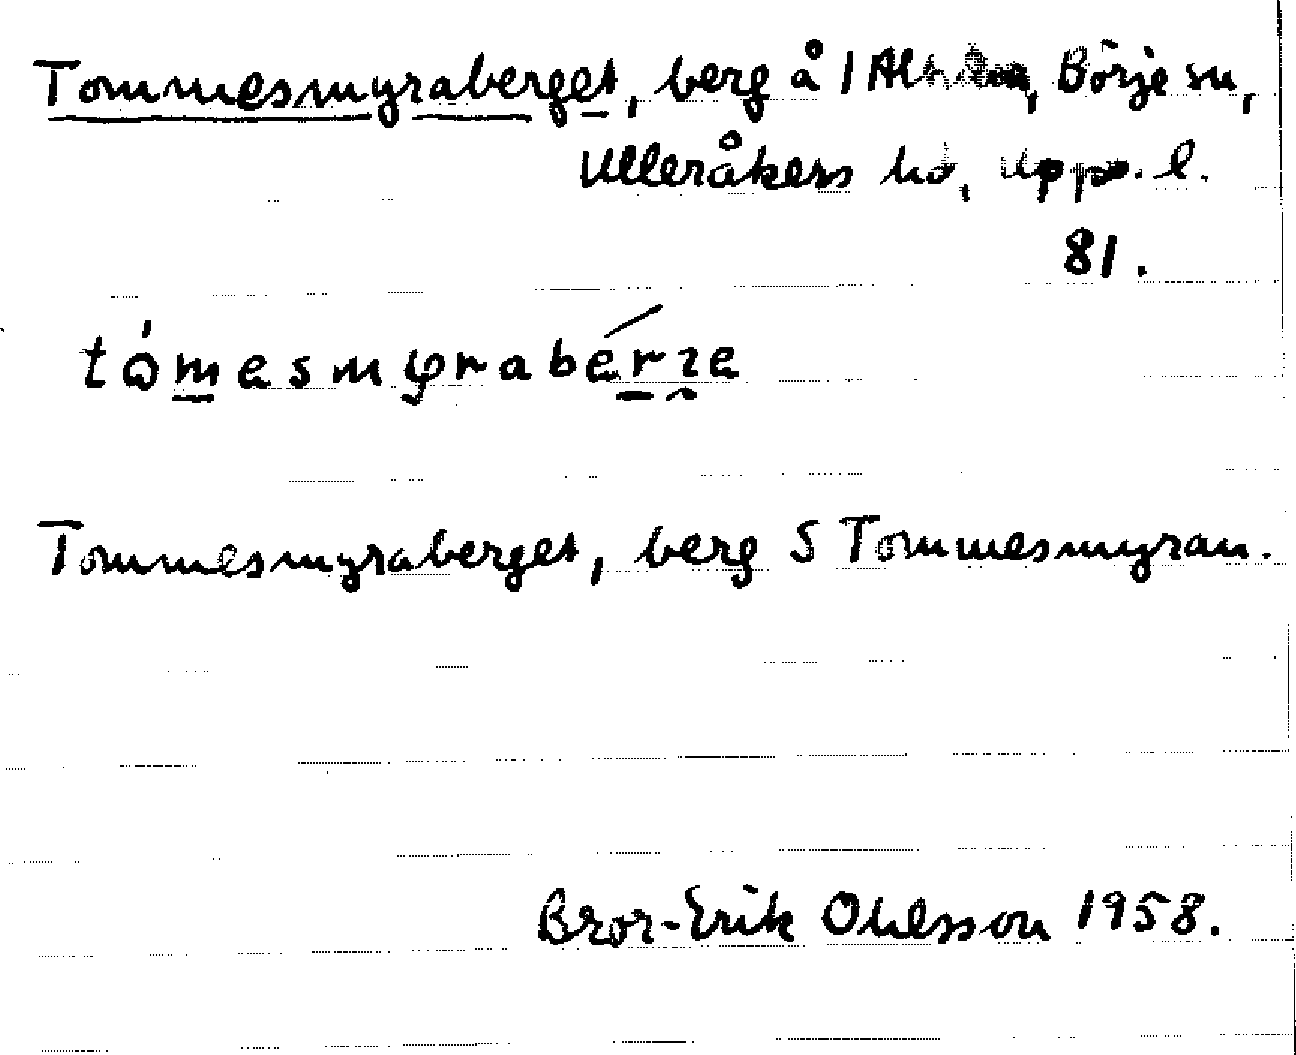 Tommesmyraberget, berg å 1 Börje sn,
Ulleråkers hd, Upps. l.
81.
tómesmyrabérze
Tommesmyraberget, berg S Tommesmyran.
Bror-Erik Ohlsson 1958.